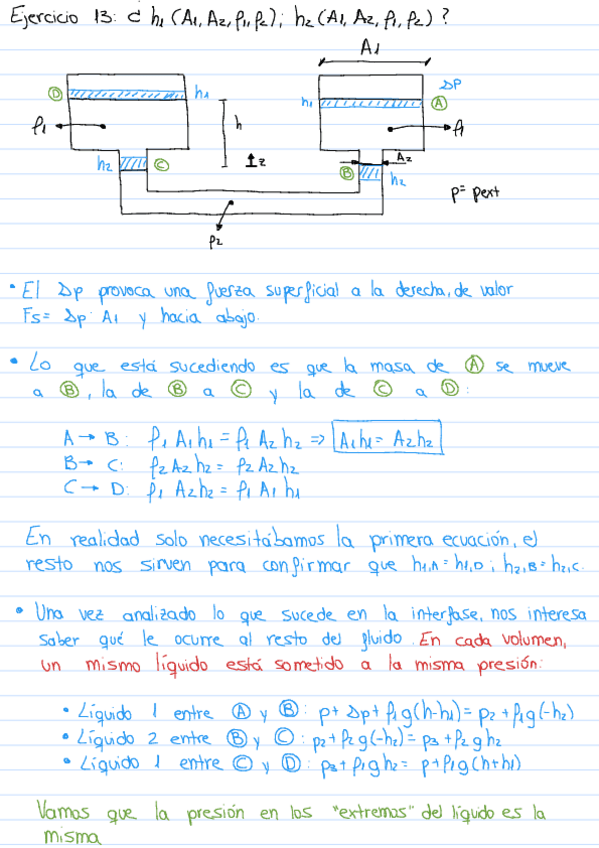 Ejercicio 13: ¿ h1 (A1, A2, ρ1, ρ2); h2 (A1, A2, ρ1, ρ2) ?
A1
D h1 h1 Δp A
h
ρ1 ρ1
h2 C z A2
B h2
p = pext
ρ2
• El Δp provoca una fuerza superficial a la derecha, de valor
Fs = Δp · A1 y hacia abajo.
• Lo que está sucediendo es que la masa de A se mueve
a B, la de B a C y la de C a D:
A → B: ρ1 A1 h1 = ρ1 A2 h2 => A1h1 = A2h2
B → C: ρ2 A2 h2 = ρ2 A2 h2
C → D: ρ1 A2 h2 = ρ1 A1 h1
En realidad solo necesitábamos la primera ecuación, el
resto nos sirven para confirmar que h1,A = h1,D ; h2,B = h2,C.
• Una vez analizado lo que sucede en la interfase, nos interesa
saber qué le ocurre al resto del fluido. En cada volumen,
un mismo líquido está sometido a la misma presión:
• Líquido 1 entre A y B: p + Δp + ρ1 g (h-h1) = p2 + ρ1 g (-h2)
• Líquido 2 entre B y C: p2 + ρ2 g (-h2) = p3 + ρ2 g h2
• Líquido 1 entre C y D: p3 + ρ1 g h2 = p + ρ1 g (h+h1)
Vamos que la presión en los "extremos" del líquido es la
misma